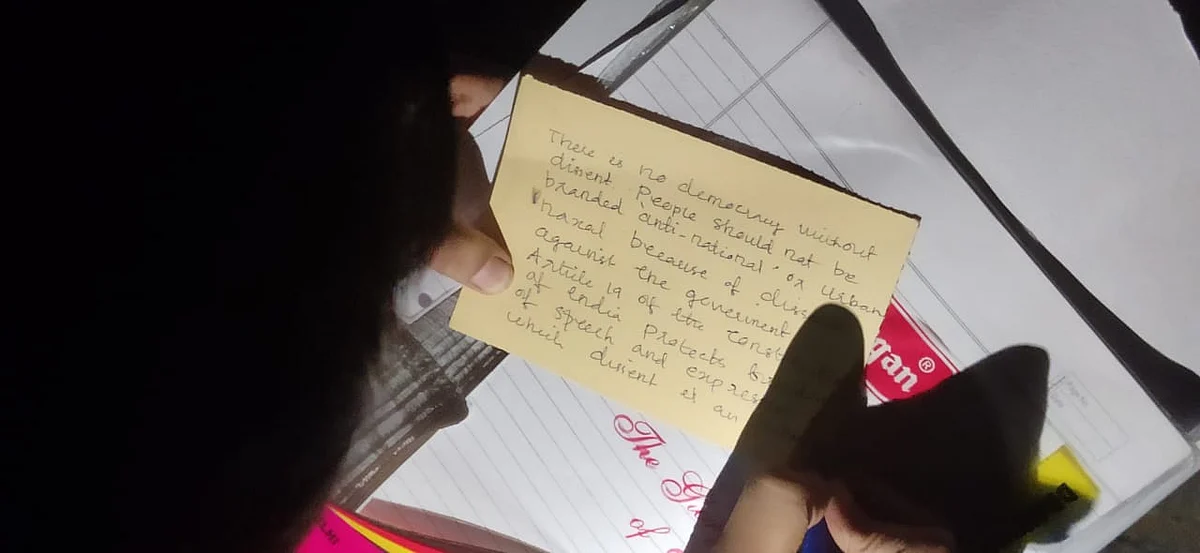 There is no democracy without
dissent. People should not be
branded anti-national or urban
naxal because of diss
against the government
Article 19 of the Const
of India protects
of speech and expres
which dissent is an
gan®
The
of